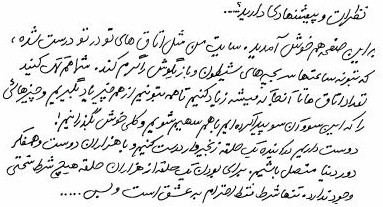 نظرات و پیشنهادی دارید؟...
براین صفحه هم خوش آمدید. سایت من مثل اتاق های تو در تو درست شده،
که میتونه ساعتها سر بچه های شیطون و بازیگوش را گرم کند. شما هم کمک کنید
تعداد اتاق ها تا آنجا که میشه زیاد کنیم تا همه بتونیم از هم چیز یاد بگیریم و چیزهائی
را که این سو و آن سو پیدا کرده ایم با هم سهیم شویم و کلی خوش بگذرانیم!
دوست داریم هر کدام یک حلقه زنجیر وار درست کنیم و با هزاران دوست و همفکر
در دنیا متصل باشیم. برای بودن یک حلقه از هزاران حلقه هیچ شرط سختی
وجود ندارد. تنها شرط، نقطه احترام به عشق است و بس.....